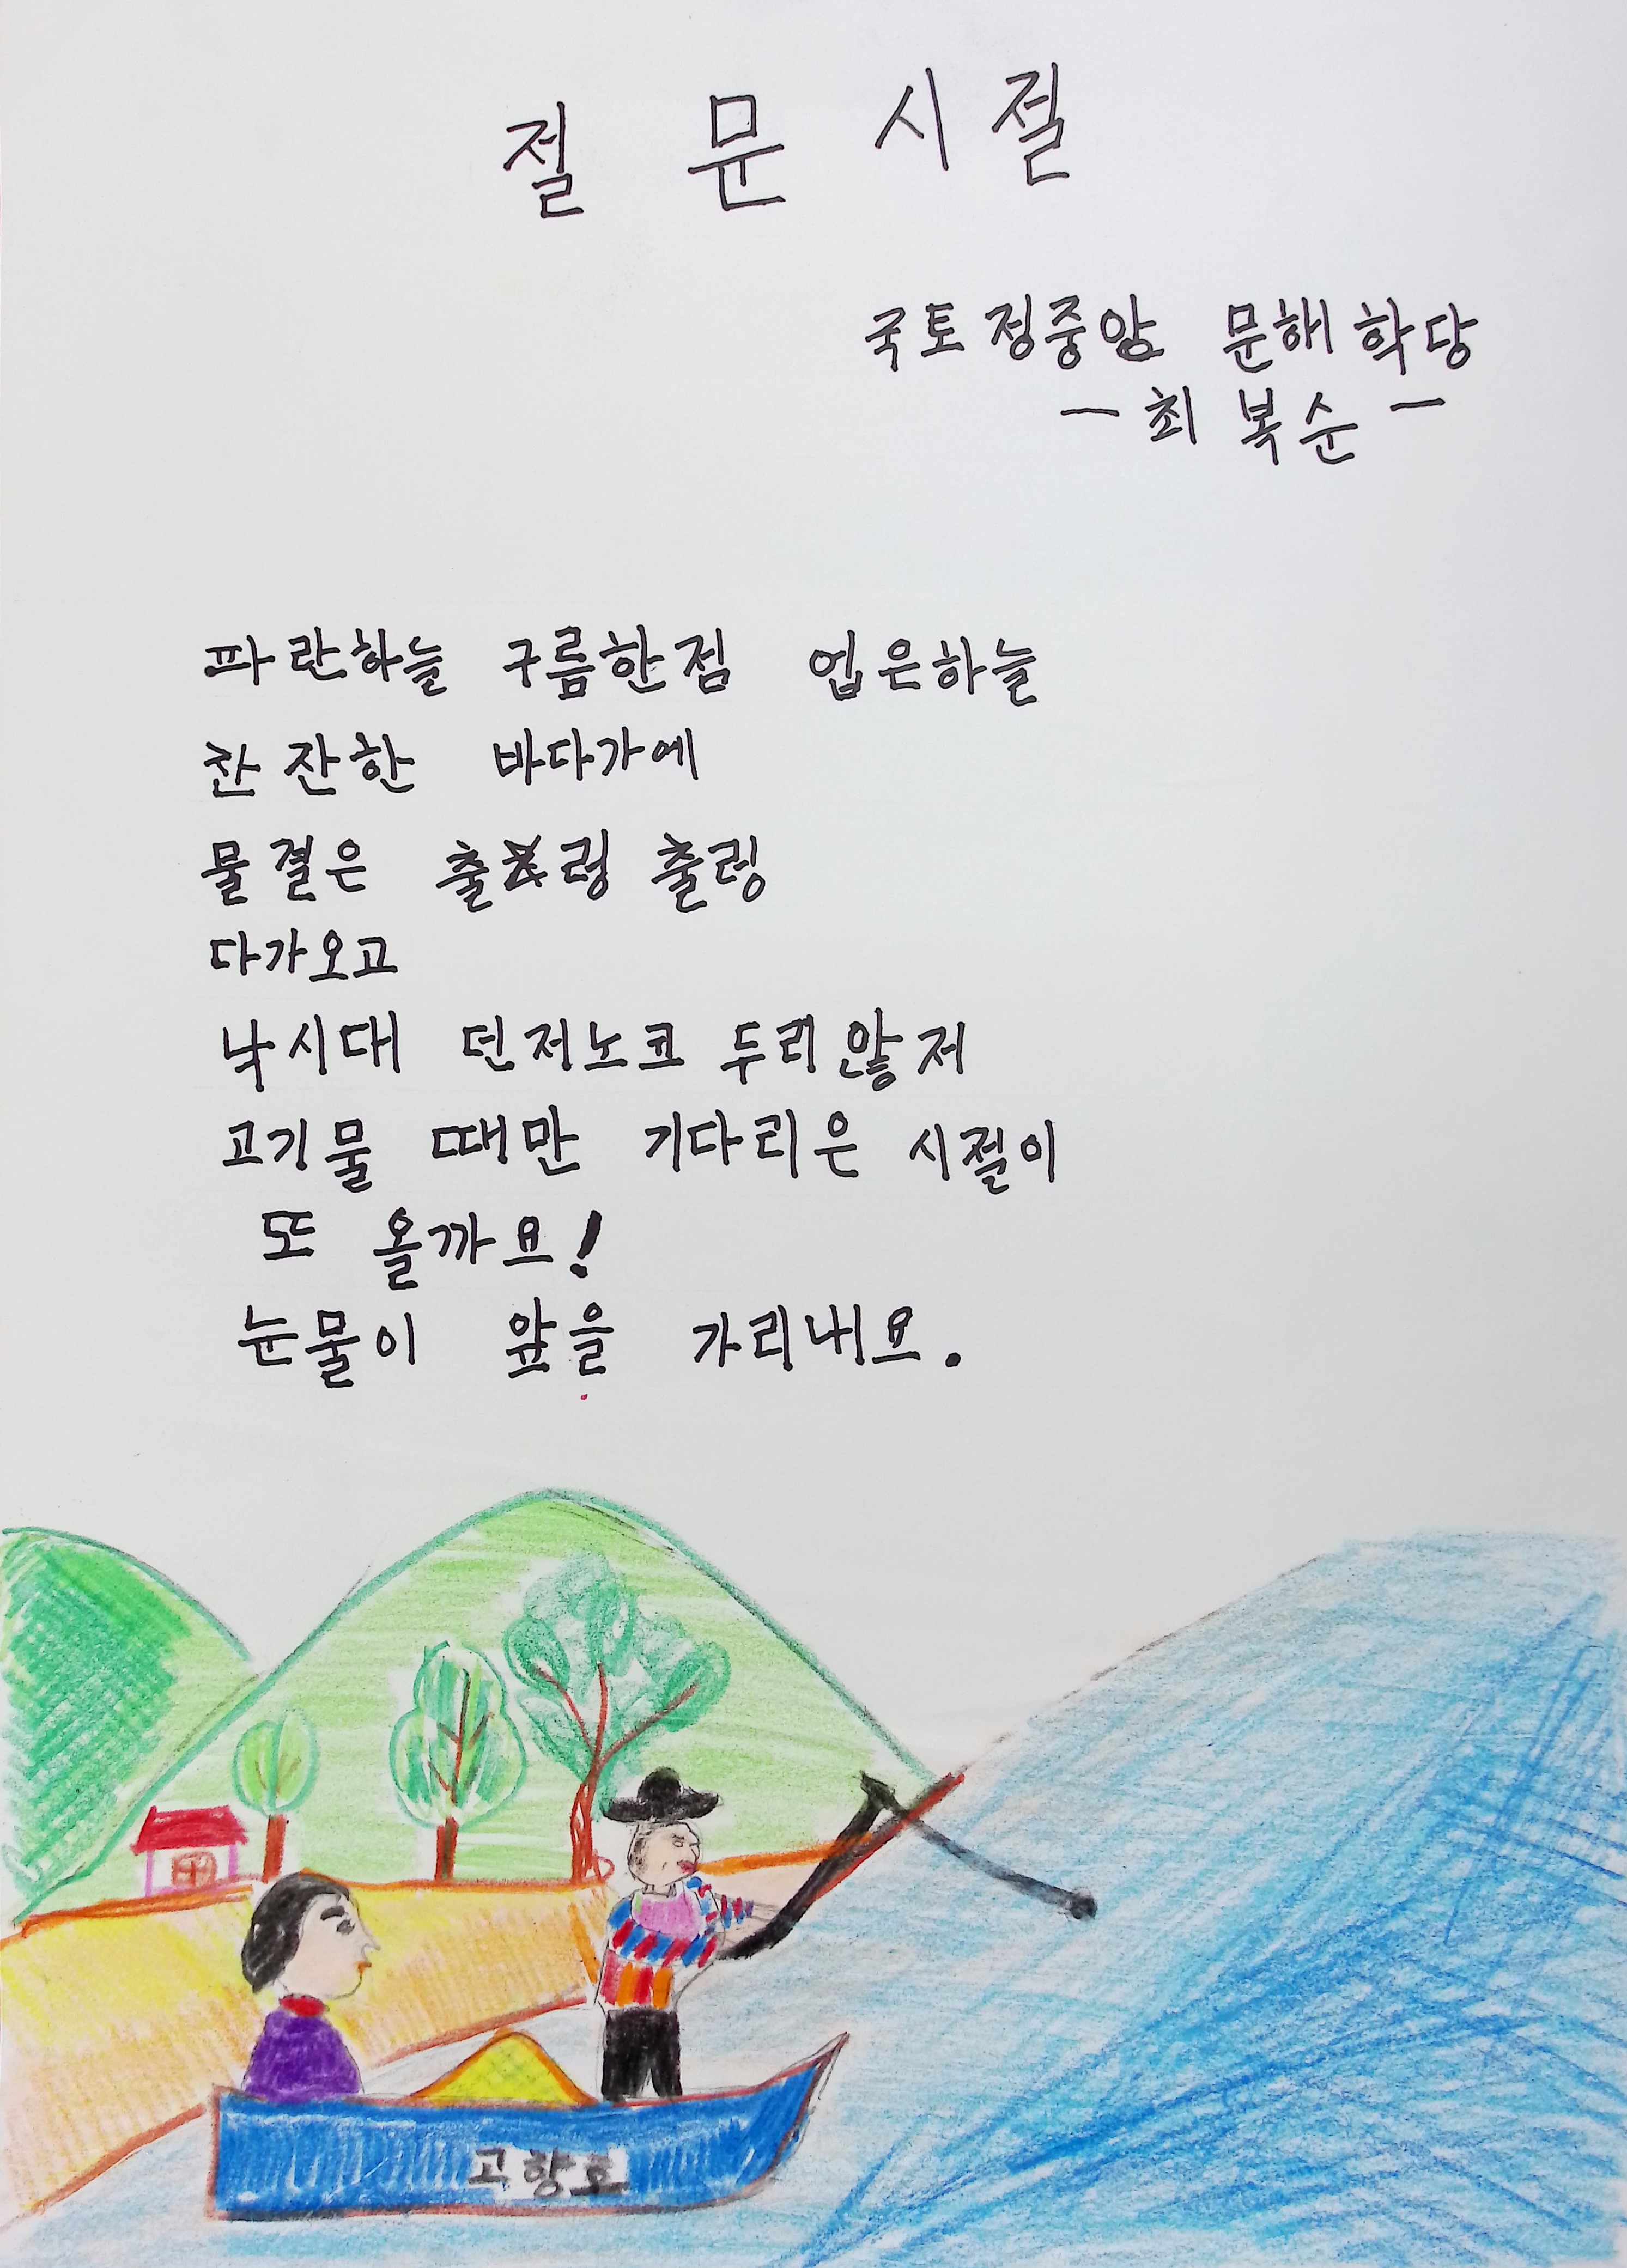 절 문 시절
국토정중앙 문해학당
- 최 복순 -
파란하늘 구름한점 업은하늘
찬잔한 바다가에
물결은 출렁 출렁
다가오고
낙시대 던저노코 두리앉저
고기물 때만 기다리은 시절이
또 올까요!
눈물이 앞을 가리내요.
고향호